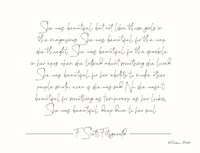 She was beautiful, but not like those girls in
the magazines. She was beautiful for the way
she thought. She was beautiful for the sparkle
in her eyes when she talked about something she loved.
She was beautiful for her ability to make other
people smile even if she was sad. No, she wasn't
beautiful for something as temporary as her looks.
She was beautiful, deep down to her soul.
F. Scott Fitzgerald